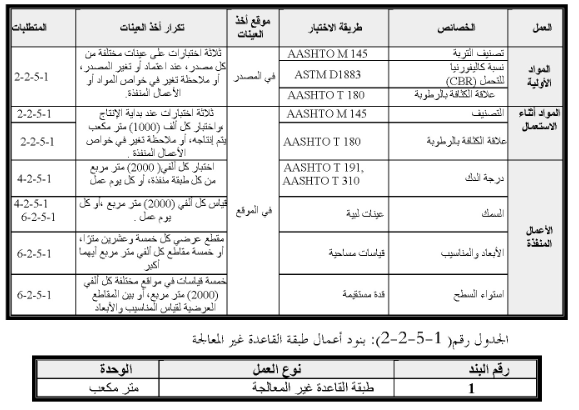 العمل | الخصائص | طريقة الاختبار | موقع أخذ العينات | تكرار أخذ العينات | المتطلبات
المواد الأولية | تصنيف التربة | AASHTO M 145 | في المصدر | ثلاثة اختبارات على عينات مختلفة من كل مصدر، عند اعتماد أو تغير المصدر، أو ملاحظة تغير في خواص المواد أو الأعمال المنفذة. | 2-2-5-1
نسبة كاليفورنيا للتحمل (CBR) | ASTM D1883
علاقة الكثافة بالرطوبة | AASHTO T 180
المواد أثناء الاستعمال | التصنيف | AASHTO M 145 | في الموقع | ثلاثة اختبارات عند بداية الإنتاج ،واختبار كل ألف (1000) متر مكعب يتم إنتاجه، أو ملاحظة تغير في خواص الأعمال المنفذة . | 2-2-5-1
علاقة الكثافة بالرطوبة | AASHTO T 180 | 2-2-5-1
الأعمال المنفذة | درجة الدك | AASHTO T 191, AASHTO T 310 | اختبار كل ألفي( 2000) متر مربع من كل طبقة منفذة، أو كل يوم عمل | 4-2-5-1
السمك | عينات لبية | قياس كل ألفي (2000) متر مربع ،أو كل يوم عمل . | 4-2-5-1 6-2-5-1
الأبعاد والمناسيب | قياسات مساحية | مقطع عرضي كل خمسة وعشرين مترًا، أو خمسة مقاطع كل ألفي متر مربع أيهما أكبر | 6-2-5-1
استواء السطح | قدة مستقيمة | خمسة قياسات في مواقع مختلفة كل ألفي (2000) متر مربع، أو بين المقاطع العرضية لقياس المناسيب والأبعاد | 6-2-5-1
الجدول رقم( 1-5-2-2): بنود أعمال طبقة القاعدة غير المعالجة
رقم البند | نوع العمل | الوحدة
1 | طبقة القاعدة غير المعالجة | متر مكعب